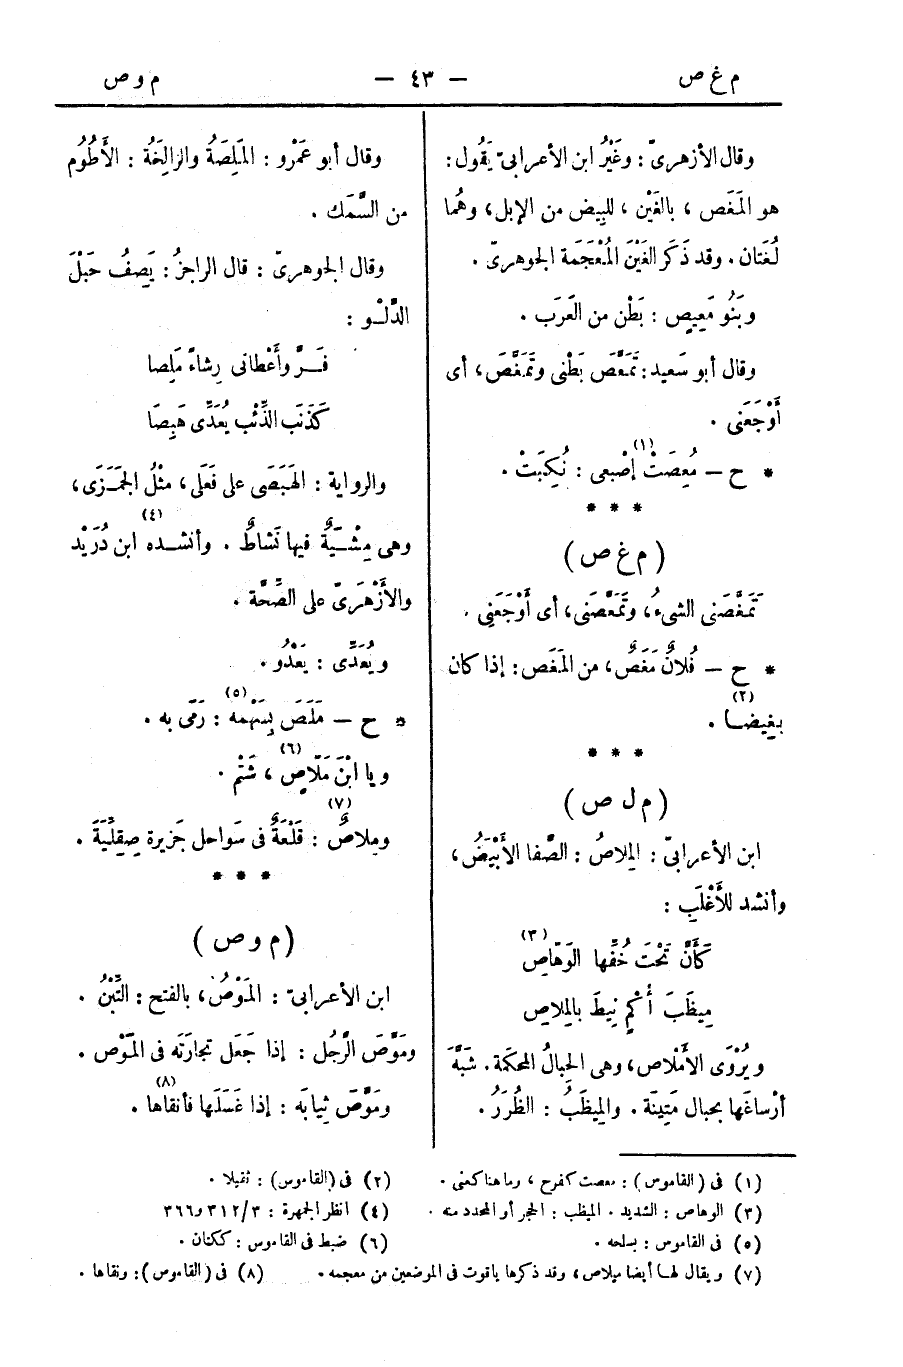 م غ ص — ٤٣ — م و ص
وقال الأزهرىّ : وغَيْرُ ابن الأعرابىّ يَقُول :
هو المَغَص ، بالغَيْن ، للبِيض من الإبل ، وهُما
لُغَتان . وقد ذَكَر الغَيْنَ المُعْجَمَة الجوهرىّ .
وبَنُو مَعِيصٍ : بَطْن من العَرَب .
وقال أبو سَعيد : تَمَعَّص بَطْنى وتَمَغَّصَ ، أى
أوْجَعَنى .
* ح — مُعِصَتْ (١) إصْبعى : نُكِبَتْ .
* * *
( م غ ص )
تَمَغَّصَنى الشىءُ ، وتَمَعَّصَنى ، أى أوْجَعَنِى .
* ح — فُلانٌ مَغَصٌ ، من المَغَص : إذا كان
بغِيضا (٢) .
* * *
( م ل ص )
ابن الأعرابىّ : المِلاصُ : الصَّفا الأبْيَضُ ،
وأنشد للأَغْلَبِ :
كَأَنَّ تَحْتَ خُفِّها الوَهّاصِ (٣)
مِيظَبَ أُكْمٍ نِيطَ بالمِلاصِ
ويُرْوَى الأمْلاص ، وهى الحِبالُ المحكَمة . شَبَّهَ
أرْساغَها بحبال مَتِينَة . والمِيظَبُ : الظُّرَرُ .
وقال أبو عَمْرو : المَلِصَةُ والزالِخَةُ : الأَطُوم
من السَّمَك .
وقال الجوهرىّ : قال الراجزُ : يَصفُ حَبْلَ
الدَّلْو :
فَرَّ وأَعْطانى رِشاءً مَلِصا
كَذَنَب الذِّئْب يُعَدَّى هَبِصَا
والرواية : الهَبَصَى على فَعَلَى ، مثْلُ الجَمَزَى ،
وهى مِشْيَةٌ فيها نَشاطٌ . وأنشده (٤) ابن دُرَيْد
والأَزْهَرِىّ على الصِّحَّة .
ويُعَدَّى : يَعْدُو .
* ح — مَلَصَ بِسَهْمه (٥) : رَمَى به .
ويا ابْنَ مَلّاصٍ (٦) ، شَتْم .
ومِلاصٌ (٧) : قَلْعَةٌ فى سَواحل جَزيرة صِقِلِّيَّةَ .
* * *
( م و ص )
ابن الأعرابىّ : المَوْصُ ، بالفتح : التِّبْنُ .
ومَوَّصَ الرَّجُل : إذا جَعَل تجارَتَه فى المَوْص .
ومَوَّصَ ثِيابَه : إذا غَسَلَها فأنقاها (٨) .
(١) فى (القاموس) : معصت كفرح ، وما هنا كعنى . (٢) فى (القاموس) : ثقيلا .
(٣) الوهاص : الشديد . الميظب : الحجر أو المحدد منه . (٤) انظر الجمهرة : ٣/٣١٢ و٣٦٦
(٥) فى القاموس : بسلحه . (٦) ضبط فى القاموس : ككتان .
(٧) ويقال لها أيضا ميلاص ، وقد ذكرها ياقوت فى الموضعين من معجمه . (٨) فى (القاموس) : ونقاها .